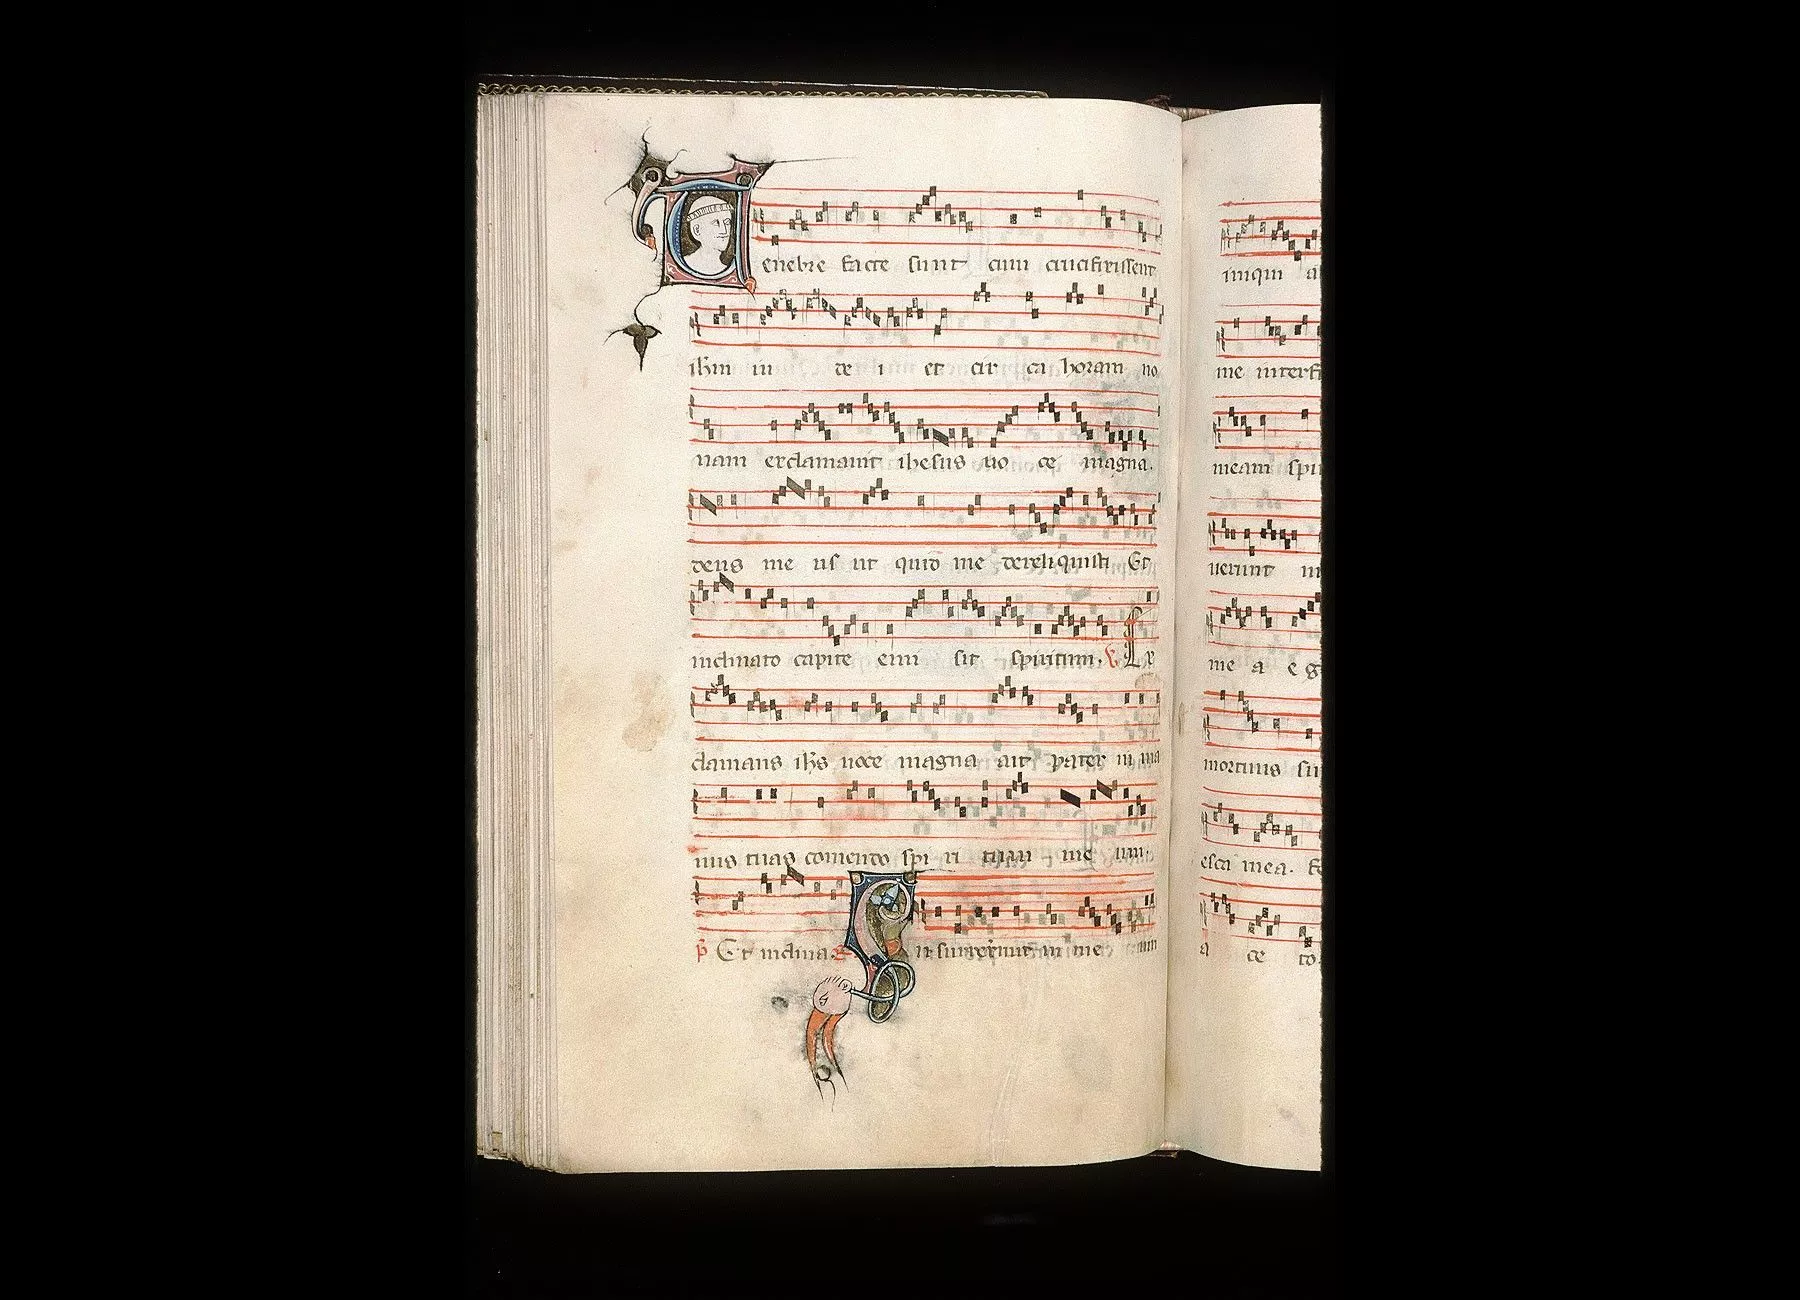 Tenebre facte sunt cum crucifixissent
ihm iu de i et cir ca horam no
nam exclamauit ihesus uo ce magna.
deus me us ut quid me dereliquisti Et
inclinato capite emi sit spiritum. V Ex
clamans ihs uoce magna ait pater in ma
nus tuas comendo spi ri tum me um.
p Et inclina. Insurrexerunt in me
iniqui a
me interfi
meam spi
uerunt in
me a e g
mortuus su
esca mea.
a ce to.